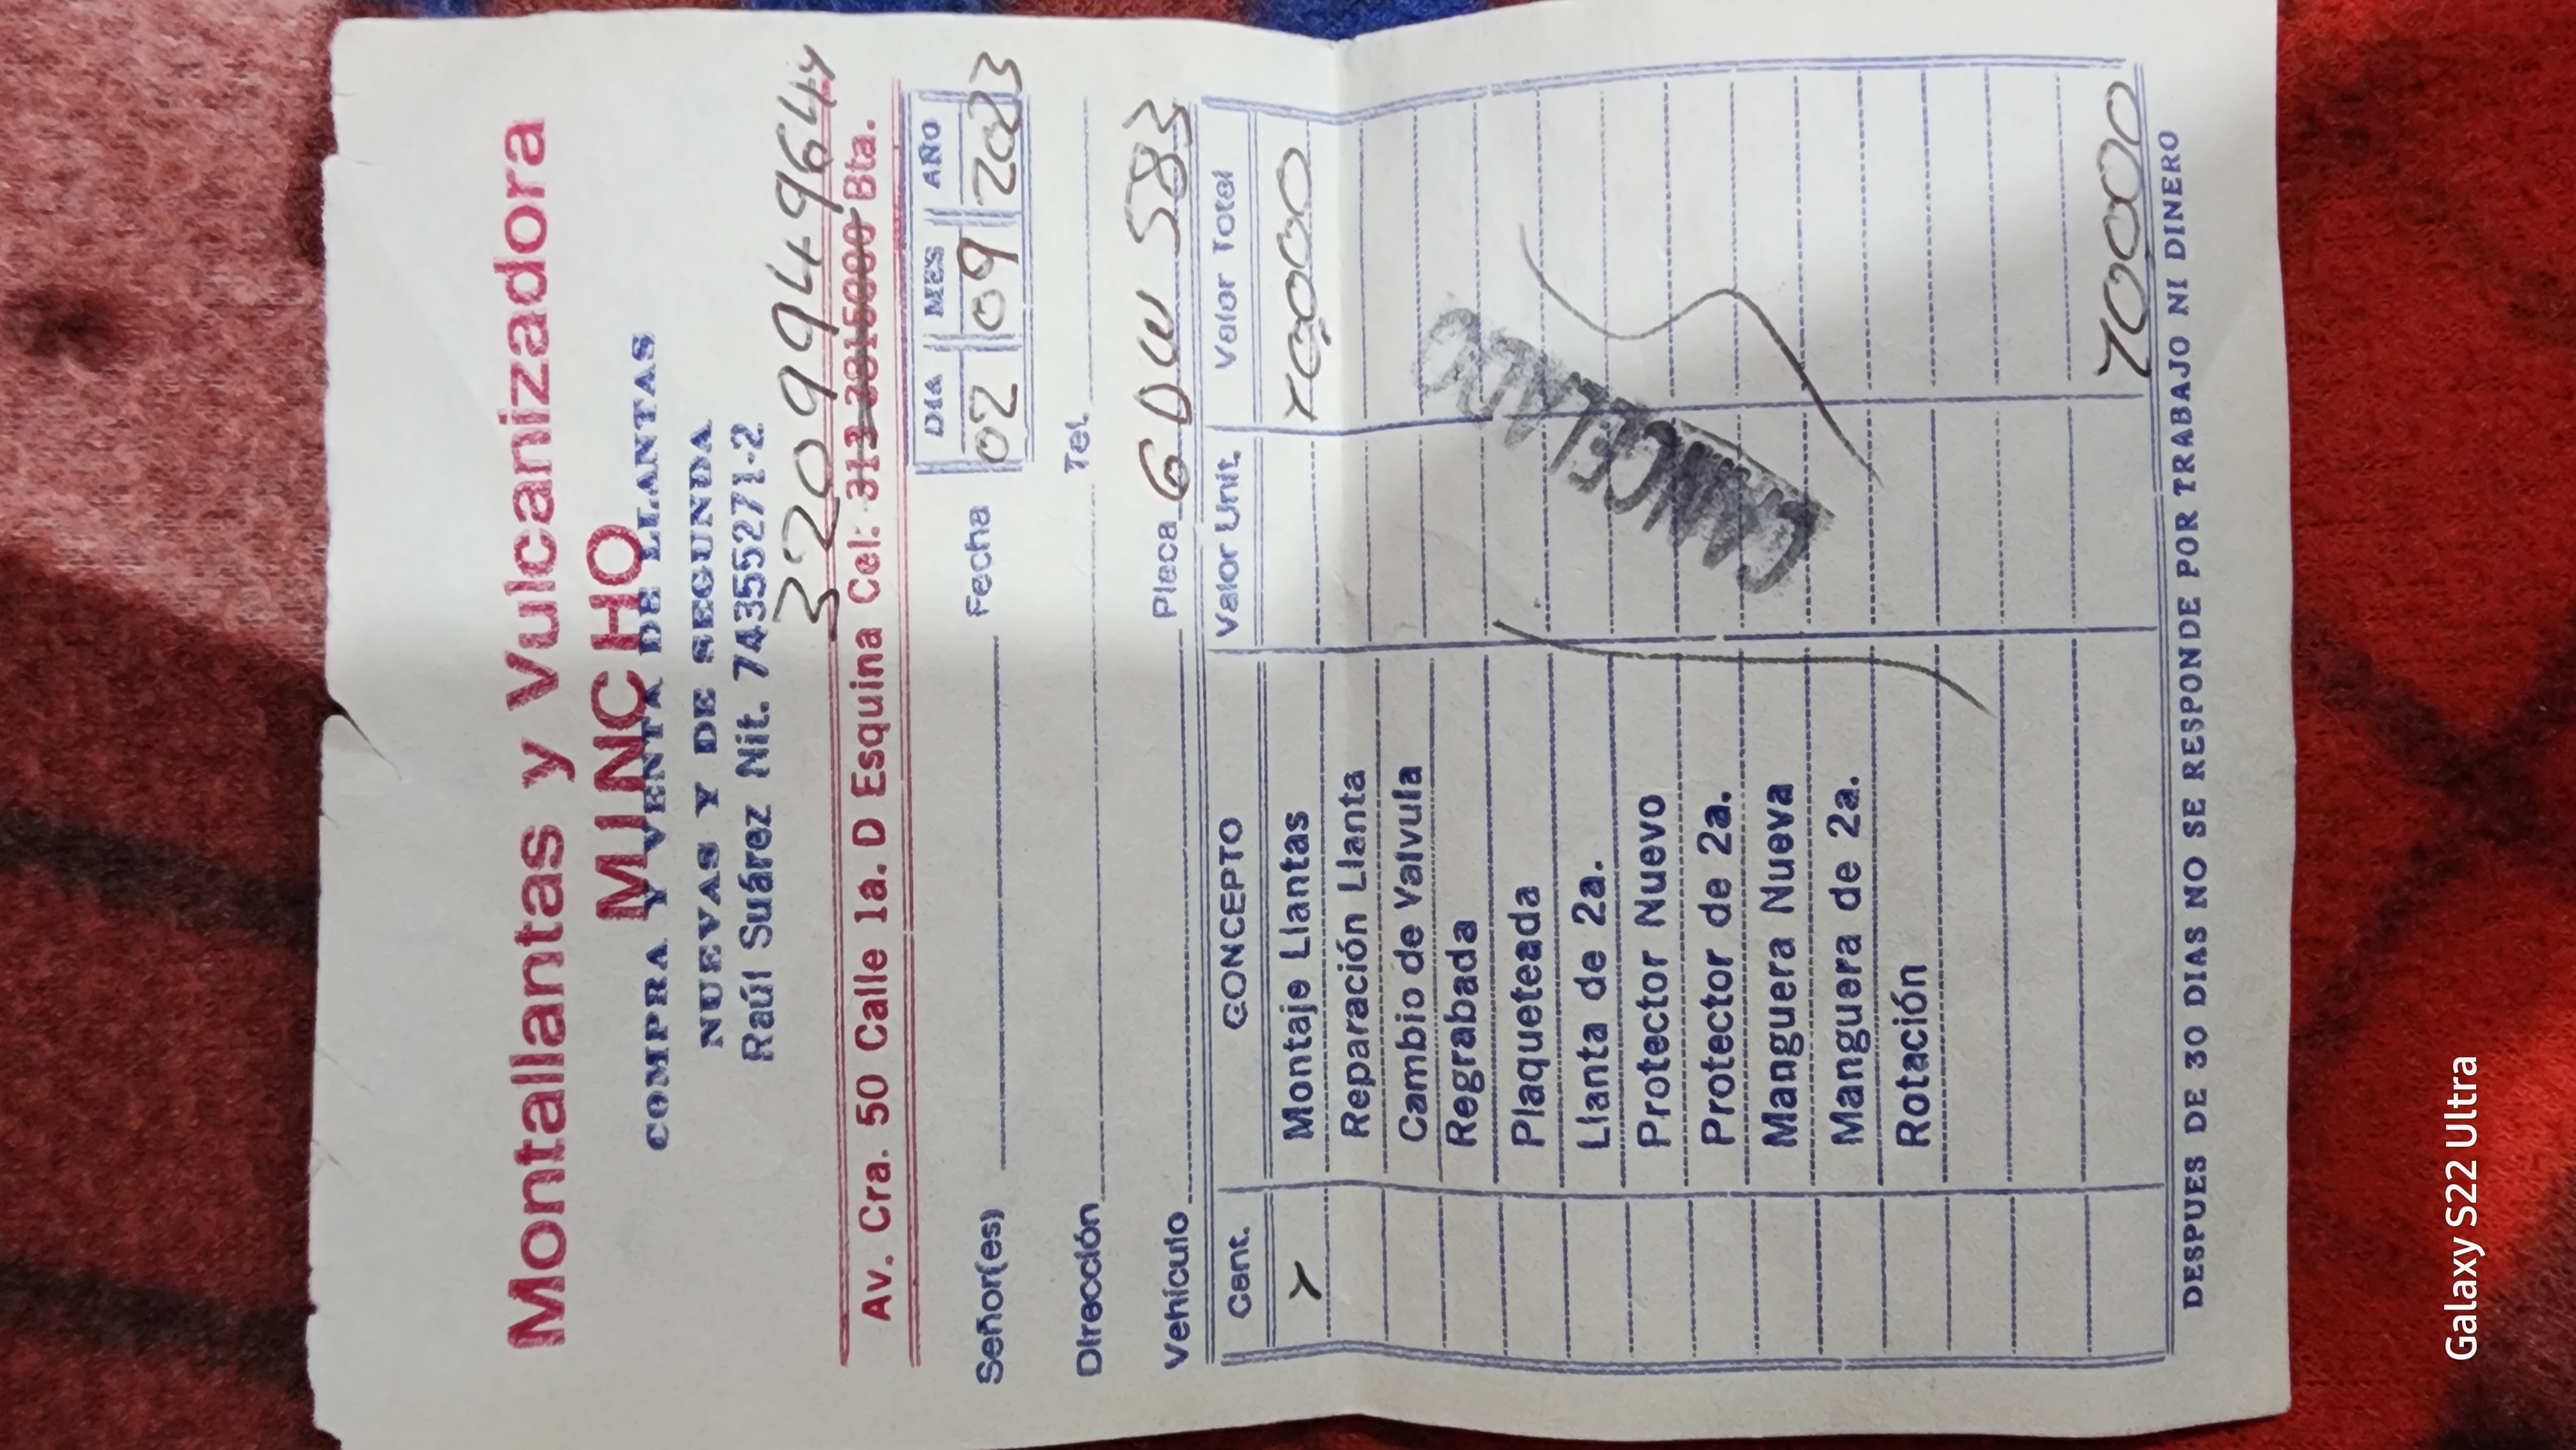 Montallantas y Vulcanizadora
MUNCHO
COMPRA Y VENTA DE LLANTAS
NUEVAS Y DE SEGUNDA
Raúl Suárez Nit. 74355271-2
3209949644
Av. Cra. 50 Calle 1a. D Esquina Cel: 313 Bta.
Señor(es) Fecha DIA MES AÑO
02 09 2023
Dirección Tel.
Vehículo Placa GDW 583
Cant. CONCEPTO Valor Unit. Valor Total
Montaje Llantas 70000
Reparación Llanta
Cambio de Valvula
Regrabada
Plaqueteada
Llanta de 2a.
Protector Nuevo
Protector de 2a.
Manguera Nueva
Manguera de 2a.
Rotación
CANCELADO
70000
DESPUES DE 30 DIAS NO SE RESPONDE POR TRABAJO NI DINERO
Galaxy S22 Ultra